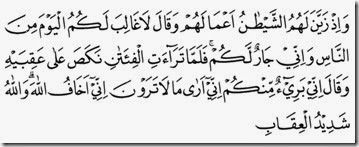 وَإِذْ زَيَّنَ لَهُمُ الشَّيْطٰنُ أَعْمَالَهُمْ وَقَالَ لَاغَالِبَ لَكُمُ الْيَوْمَ مِنَ
النَّاسِ وَإِنِّي جَارٌ لَّكُمْ ۚ فَلَمَّا تَرَآءَتِ الْفِئَتٰنِ نَكَصَ عَلَى عَقِبَيْهِ
وَقَالَ إِنِّي بَرِيٓءٌ مِّنكُمْ إِنِّيٓ أَرَى مَا لَا تَرَوْنَ إِنِّيٓ أَخَافُ اللَّهَ ۚ وَاللَّهُ
شَدِيدُ الْعِقَابِ